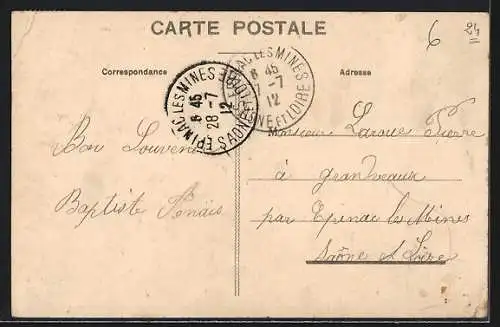 CARTE POSTALE
6 24
Correspondance
Adresse
EPINAC LES MINES
8 45
28 -7
12
SAONE ET LOIRE
EPINAC LES MINES
8 45
-7
12
SAONE ET LOIRE
Bon Souvenir
Baptiste
Monsieur Laroue Pierre
à Grandvaux
par Epinac les Mines
Saône et Loire